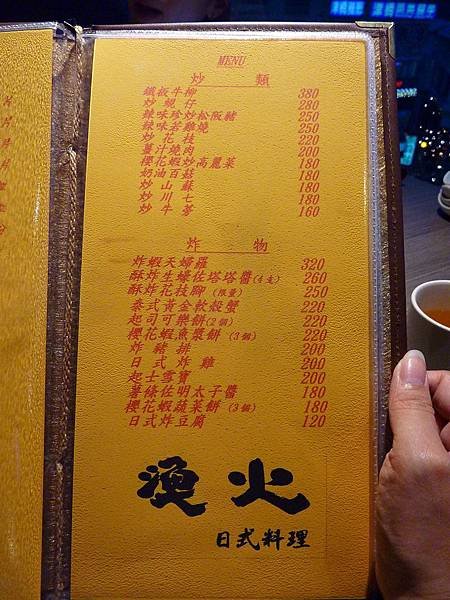 MENU
炒 類
鐵板牛柳 380
炒 蜆 仔 280
辣味珍炒松阪豬 250
辣味若雞燒 250
炒 花 枝 220
薑汁燒肉 200
櫻花蝦炒高麗菜 180
奶油百菇 180
炒 山 蘇 180
炒 川 七 180
炒 牛 蒡 160
炸 物
炸蝦天婦羅 320
酥炸生蠔佐塔塔醬(4支) 260
酥炸花枝腳(限量) 250
泰式黃金軟殼蟹 220
起司可樂餅(2個) 220
櫻花蝦魚漿餅(3個) 220
炸 豬 排 200
日 式 炸 雞 200
起士雪寶 200
薯條佐明太子醬 180
櫻花蝦蔬菜餅(3個) 180
日式炸豆腐 120
漁火
日式料理